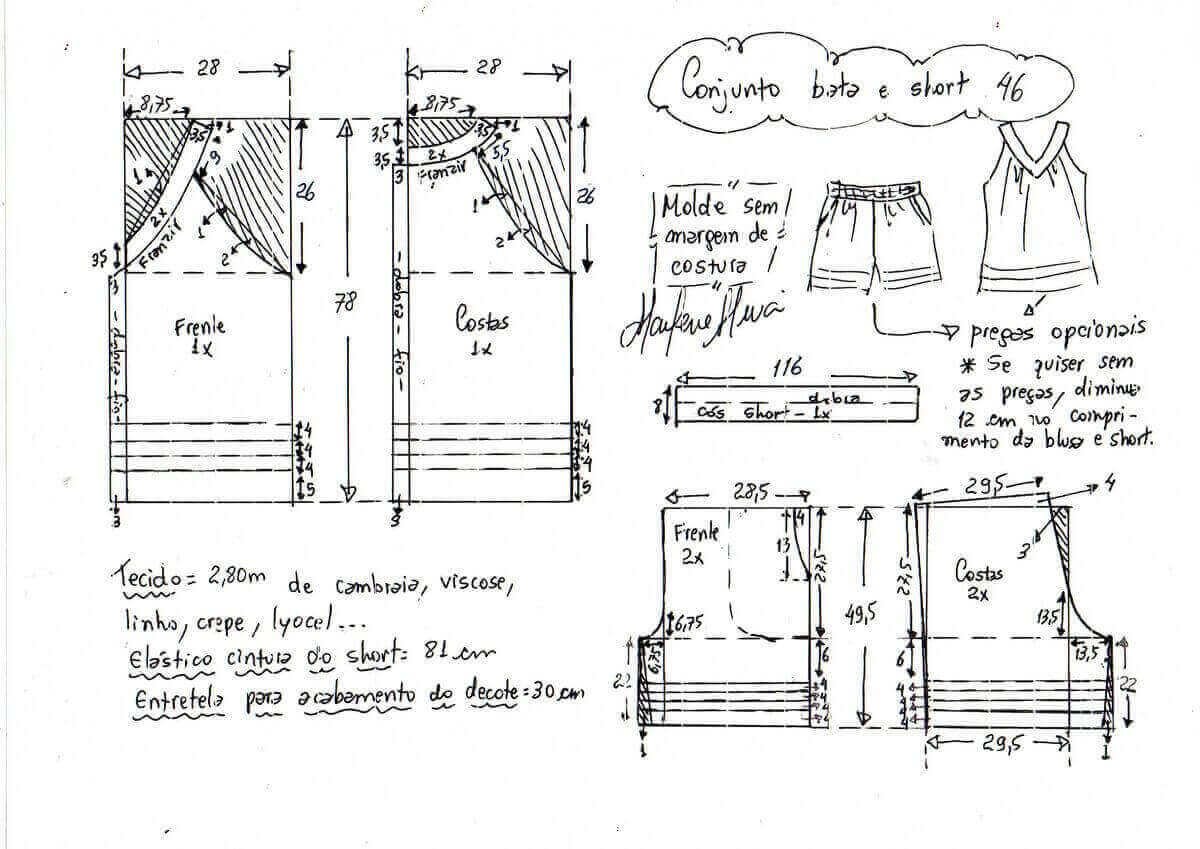 Conjunto bata e short 46
28
8,75
3,5
1
9
1
2x
Franzir
1
2
3,5
3
26
Frente
1x
dobra - fio
4
4
4
5
3
78
28
8,75
3,5
3,5
3,5
1
5,5
2x
Franzir
3
1
2
26
dobra - fio
Costas
1x
4
4
4
5
3
Molde sem
margem de
costura
pregas opcionais
* Se quiser sem
as pregas, diminue
12 cm no compri-
mento da blusa e short.
116
8
dobra
cós short - 1x
28,5
Frente
2x
4
13
27,5
6,75
6,75
6
22
4
4
4
4
1
49,5
29,5
4
3
27,5
Costas
2x
13,5
13,5
6
4
4
4
4
22
29,5
1
Tecido = 2,80m de cambraia, viscose,
linho, crepe, lyocel...
Elástico cintura do short = 81 cm
Entretela para acabamento do decote = 30 cm